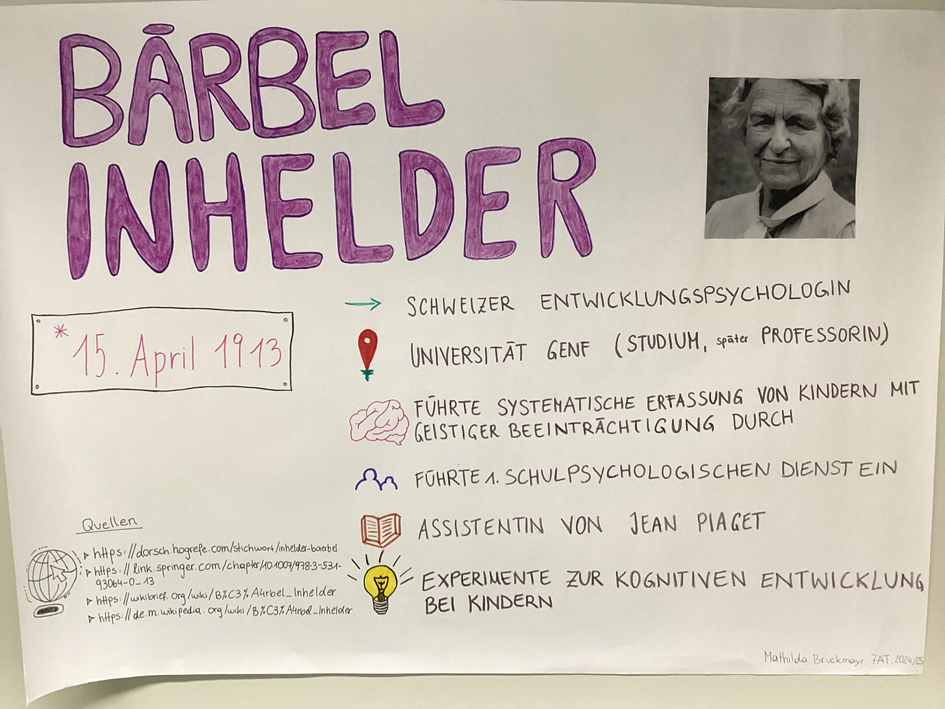 BÄRBEL
INHELDER
* 15. April 1913
SCHWEIZER ENTWICKLUNGSPSYCHOLOGIN
UNIVERSITÄT GENF (STUDIUM, später PROFESSORIN)
FÜHRTE SYSTEMATISCHE ERFASSUNG VON KINDERN MIT
GEISTIGER BEEINTRÄCHTIGUNG DURCH
FÜHRTE 1. SCHULPSYCHOLOGISCHEN DIENST EIN
ASSISTENTIN VON JEAN PIAGET
EXPERIMENTE ZUR KOGNITIVEN ENTWICKLUNG
BEI KINDERN
Quellen
https://dorsch.hogrefe.com/stichwort/inhelder-baerbel
https://link.springer.com/chapter/10.1007/978-3-531-
93064-0_13
https://wikibrief.org/wiki/B%C3%A4rbel_Inhelder
https://de.m.wikipedia.org/wiki/B%C3%A4rbel_Inhelder
Mathilda Bruckmayr 7AT, 2024/25